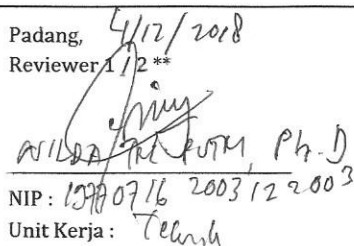 Padang, 4/12/2018
Reviewer 1 / 2 **
WILDA TRI PUTRI, Ph.D
NIP : 19770716 200312 2003
Unit Kerja : Teknik